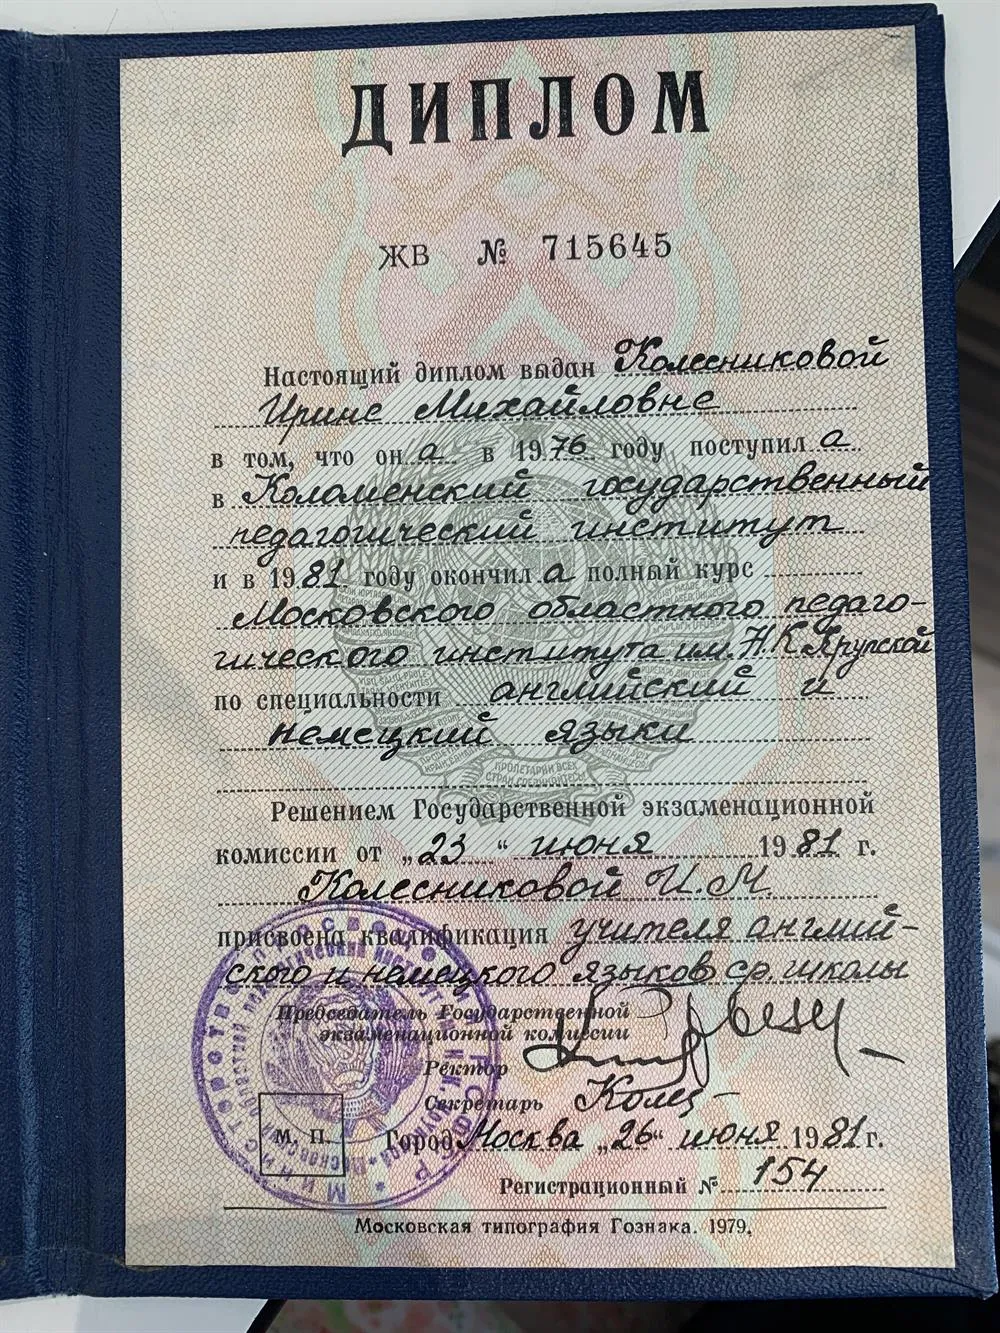 ДИПЛОМ
ЖВ № 715645
Настоящий диплом выдан Колесниковой
Ирине Михайловне
в том, что он а в 1976 году поступил а
в Коломенский государственный
педагогический институт
и в 1981 году окончил а полный курс
Московского областного педаго-
гического института им. Н.К. Крупской
по специальности английский и
немецкий языки
ПРОЛЕТАРИИ ВСЕХ
СТРАН, СОЕДИНЯЙТЕСЬ!
Решением Государственной экзаменационной
комиссии от „23“ июня 1981 г.
Колесниковой И. М.
присвоена квалификация учителя англий-
ского и немецкого языков ср. школы
Председатель Государственной
экзаменационной комиссии
Ректор
Секретарь
М. П.
Город Москва „26“ июня 1981 г.
Регистрационный № 154
Московская типография Гознака. 1979.